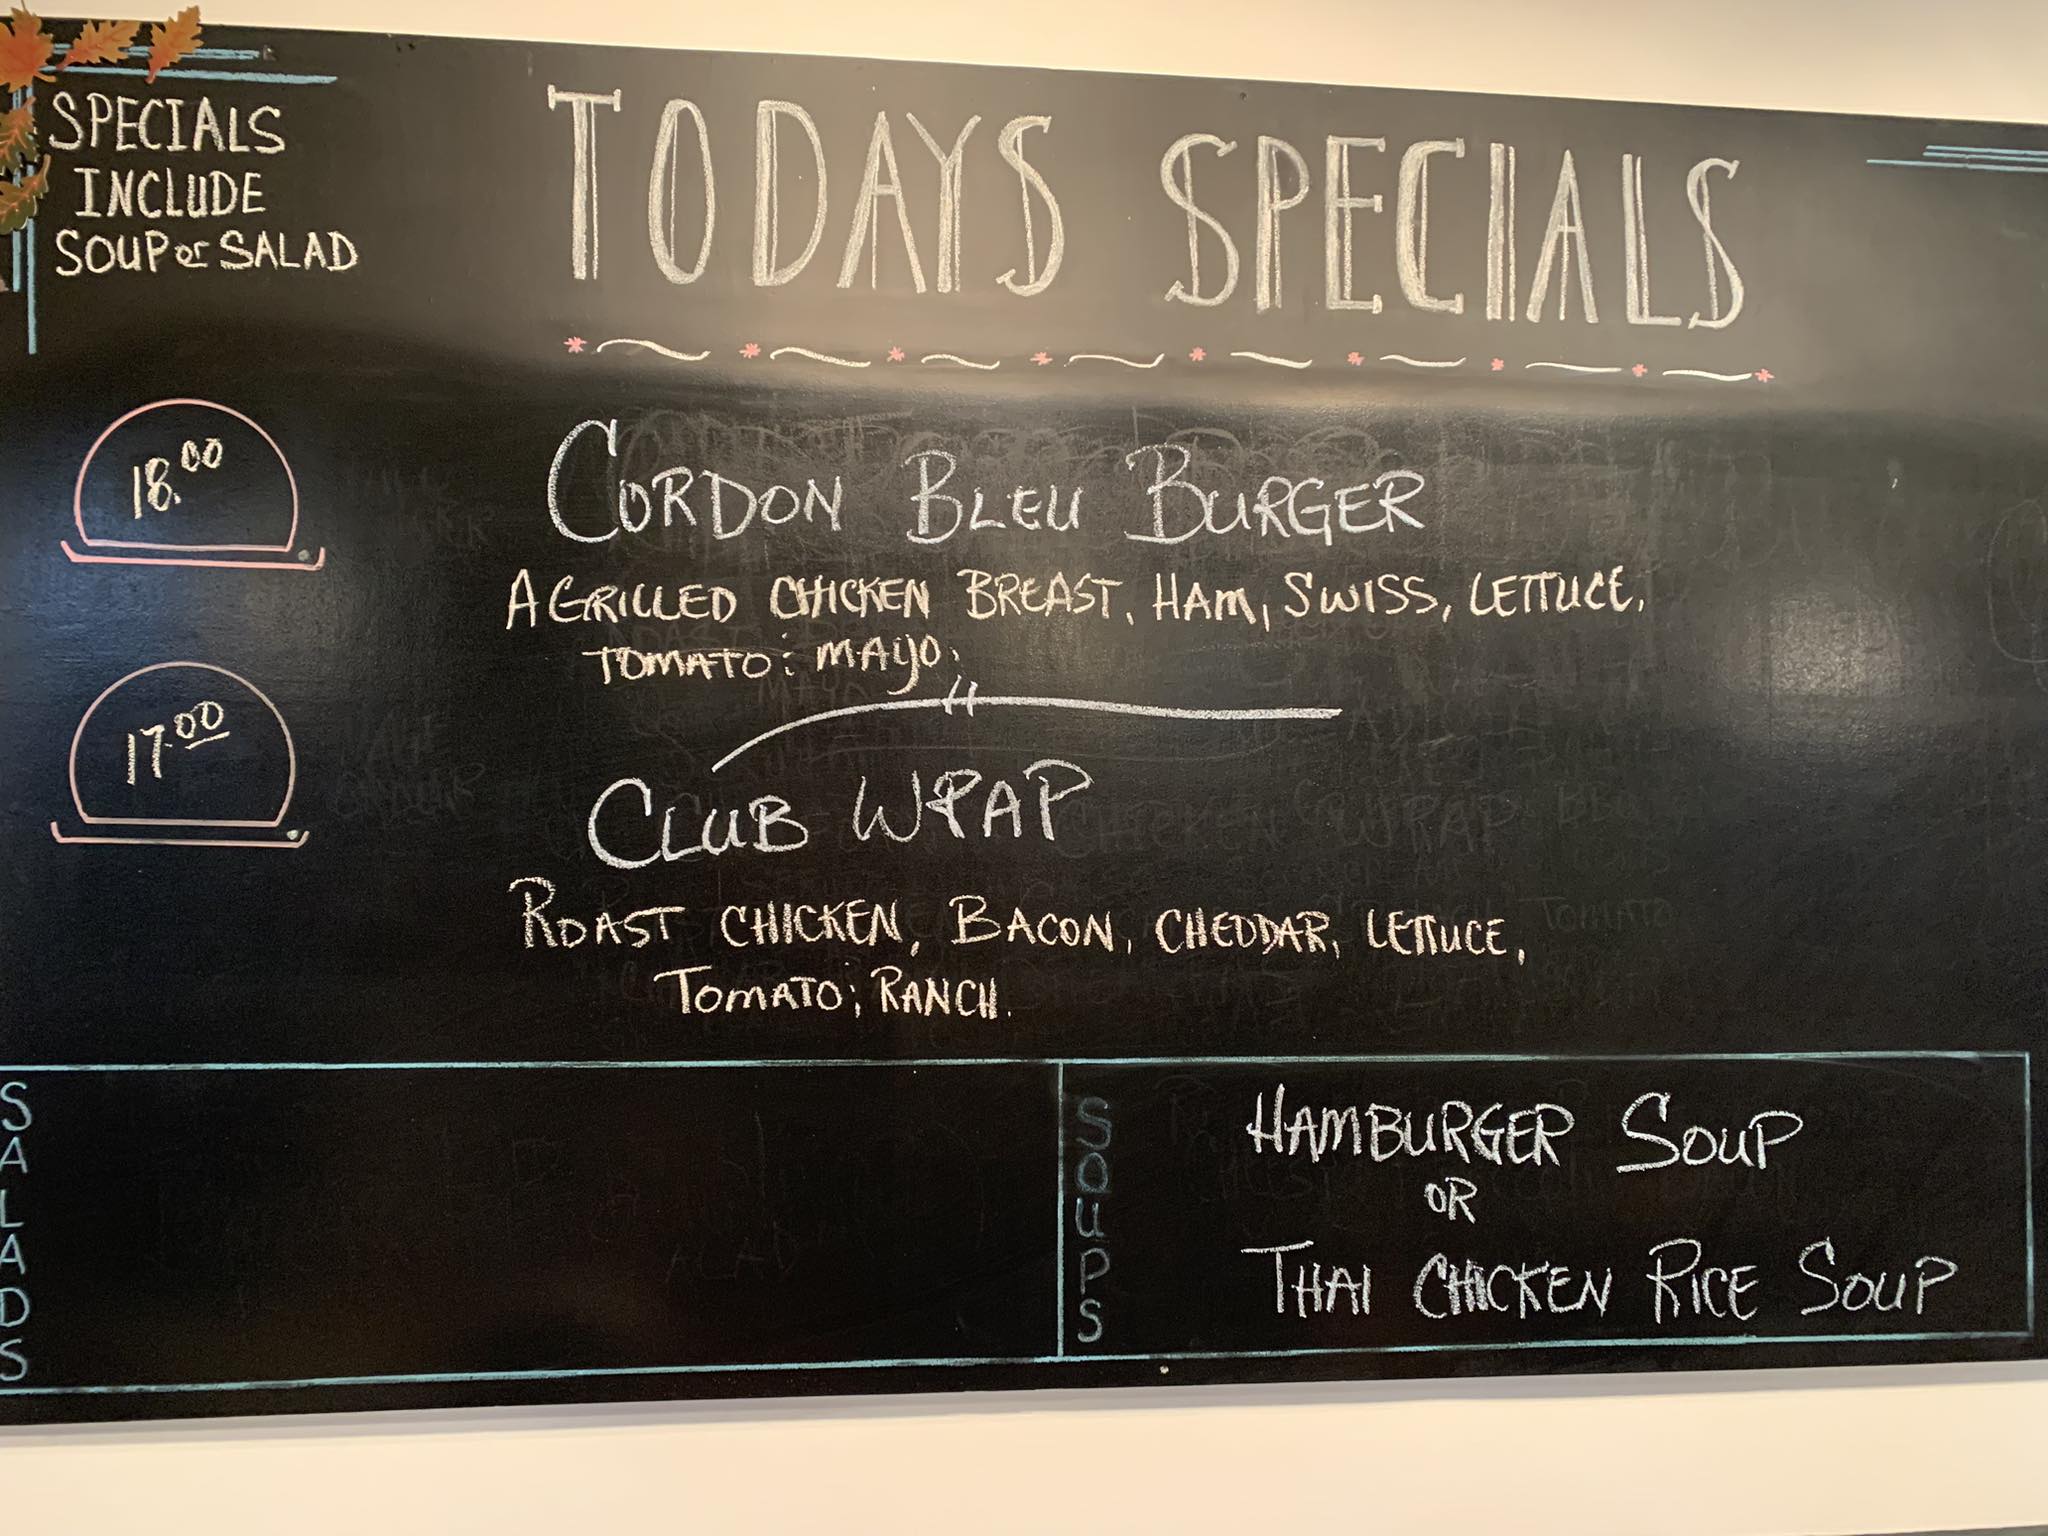 SPECIALS
INCLUDE
SOUP or SALAD
TODAYS SPECIALS
18.00
CORDON BLEU BURGER
A GRILLED CHICKEN BREAST, HAM, SWISS, LETTUCE,
TOMATO; MAYO.
17.00
CLUB WRAP
ROAST CHICKEN, BACON, CHEDDAR, LETTUCE,
TOMATO; RANCH.
SALADS
SOUPS
HAMBURGER SOUP
OR
THAI CHICKEN RICE SOUP